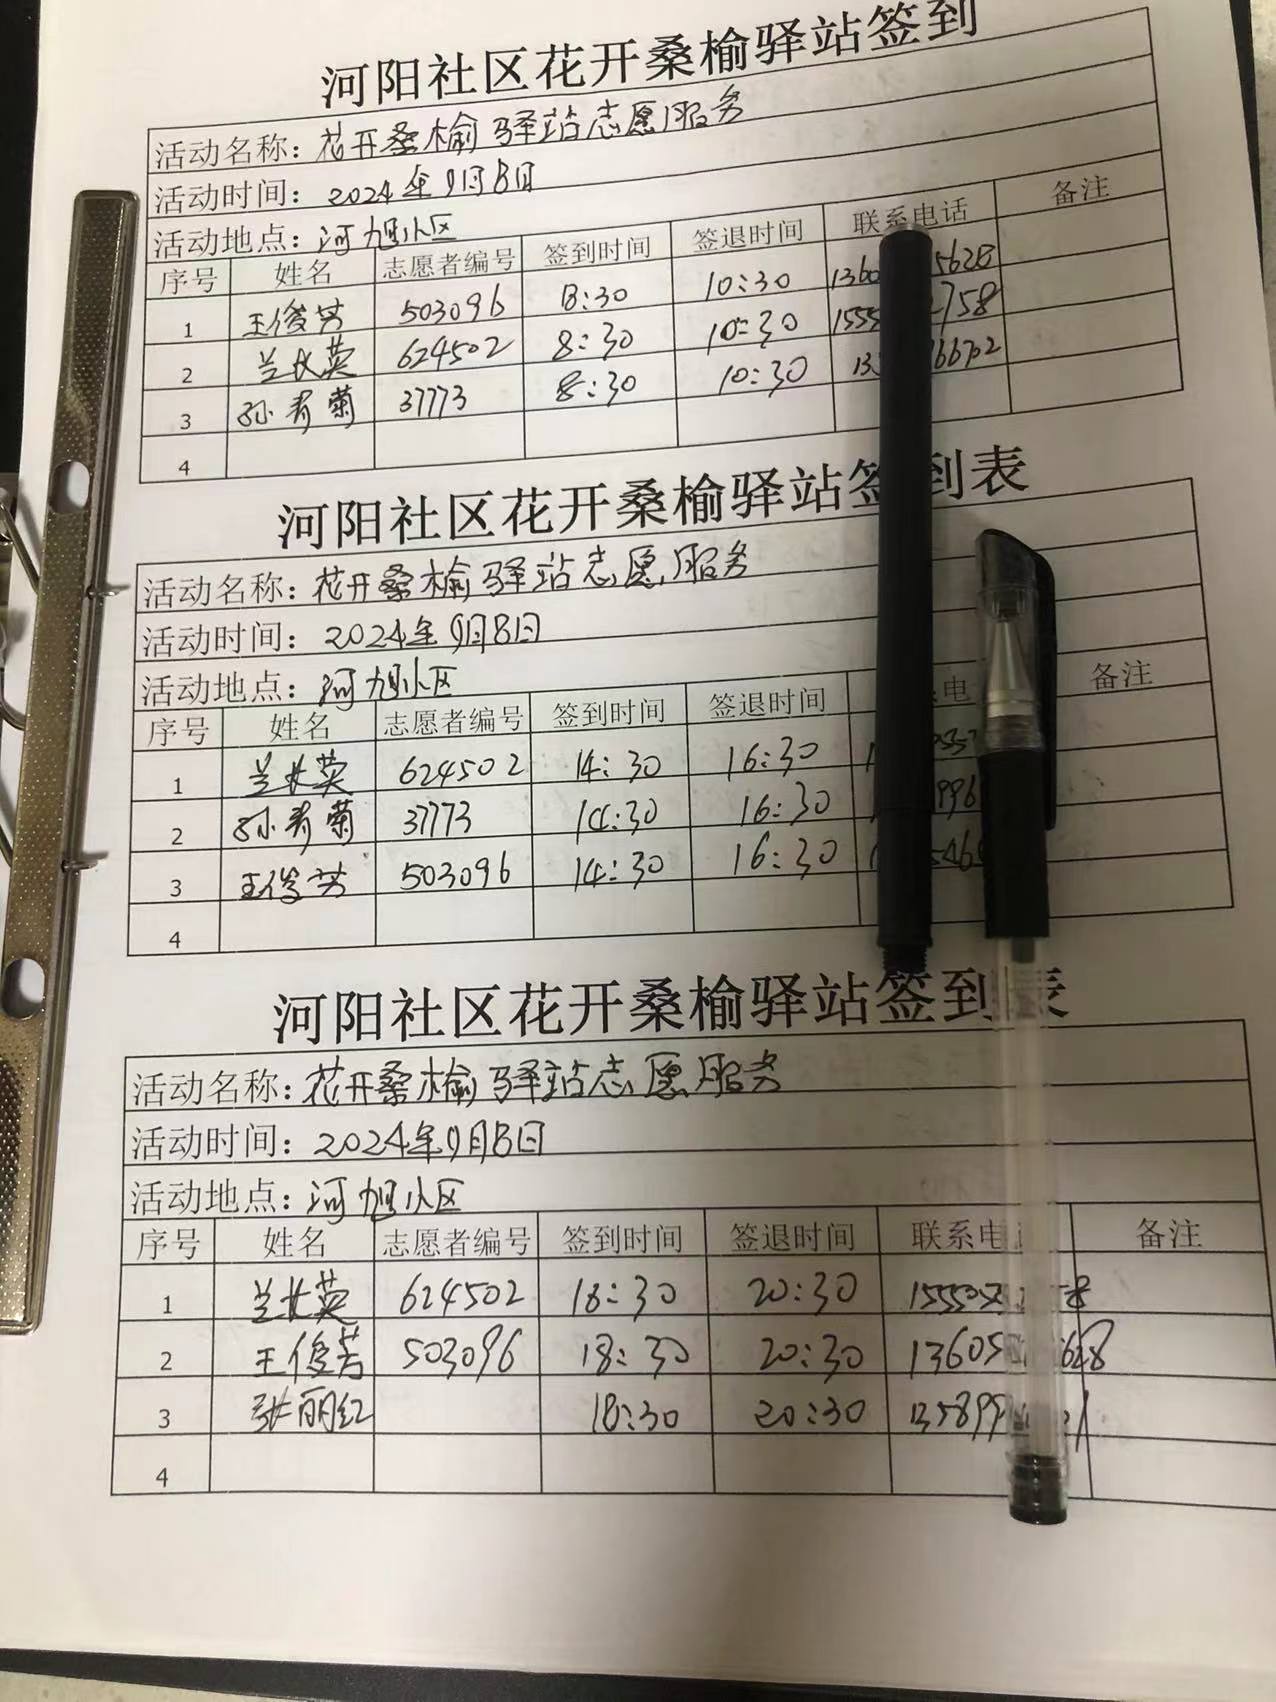 河阳社区花开桑榆驿站签到
活动名称：花开桑榆驿站志愿服务
活动时间：2024年9月8日
活动地点：河旭小区
序号 姓名 志愿者编号 签到时间 签退时间 联系电话 备注
1 王俊芳 503096 8:30 10:30 1360 5628
2 兰长英 624502 8:30 10:30 1555 2758
3 孙秀菊 37773 8:30 10:30 13 66702
4
河阳社区花开桑榆驿站签到表
活动名称：花开桑榆驿站志愿服务
活动时间：2024年9月8日
活动地点：河旭小区
序号 姓名 志愿者编号 签到时间 签退时间 电 备注
1 兰长英 624502 14:30 16:30
2 孙秀菊 37773 14:30 16:30 996
3 王俊芳 503096 14:30 16:30 546
4
河阳社区花开桑榆驿站签到表
活动名称：花开桑榆驿站志愿服务
活动时间：2024年9月8日
活动地点：河旭小区
序号 姓名 志愿者编号 签到时间 签退时间 联系电 备注
1 兰长英 624502 18:30 20:30 15550 8
2 王俊芳 503096 18:30 20:30 13605 628
3 张丽红 18:30 20:30 13589 1
4